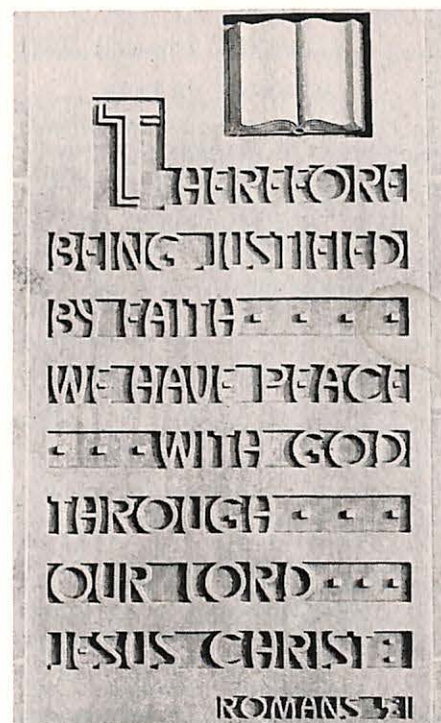 THEREFORE
BEING JUSTIFIED
BY FAITH - - - -
WE HAVE PEACE
- - - WITH GOD
THROUGH - - -
OUR LORD - - -
JESUS CHRIST:
ROMANS 5:1